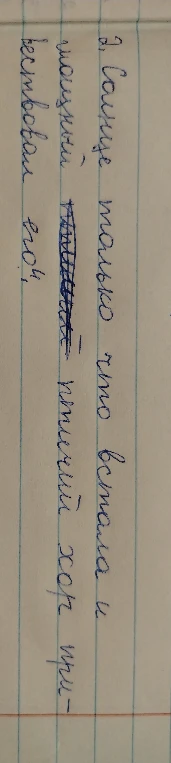 2. Солнце только что встала и
мощный птичий хор при-
вествовал его".